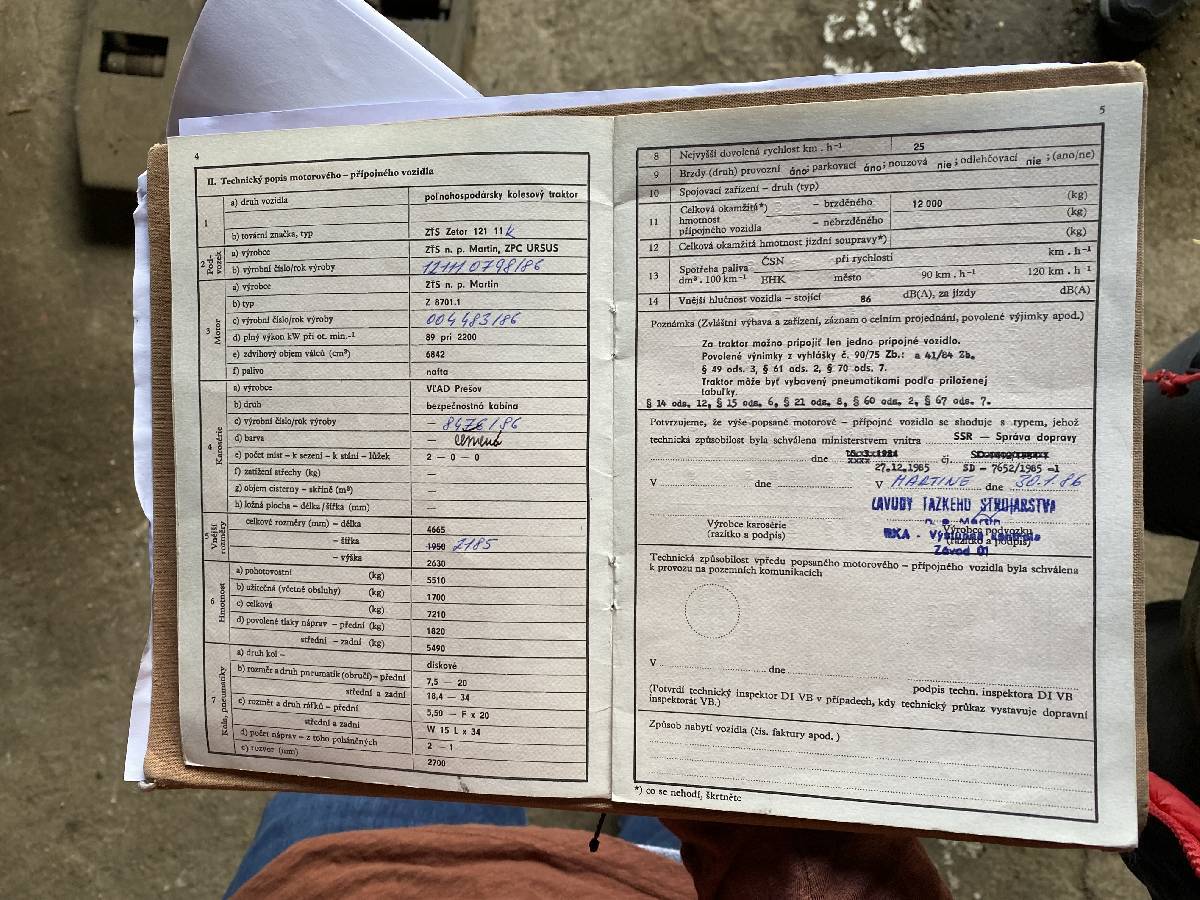 4
II. Technický popis motorového – přípojného vozidla
1
a) druh vozidla
poľnohospodársky kolesový traktor
b) tovární značka, typ
ZŤS Zetor 121 11
2
Pod-
vozek
a) výrobce
ZŤS n. p. Martin, ZPC URSUS
b) výrobní číslo/rok výroby
12111 0798/86
3
Motor
a) výrobce
ZŤS n. p. Martin
b) typ
Z 8701.1
c) výrobní číslo/rok výroby
004483/86
d) plný výkon kW při ot. min.⁻¹
89 pri 2200
e) zdvihový objem válců (cm³)
6842
f) palivo
nafta
4
Karosérie
a) výrobce
VLAD Prešov
b) druh
bezpečnostná kabína
c) výrobní číslo/rok výroby
— 8476/86
d) barva
—
e) počet míst – k sezení – k stání – lůžek
2 — 0 — 0
f) zatížení střechy (kg)
—
g) objem cisterny – skříně (m³)
—
h) ložná plocha – délka/šířka (mm)
—
Vnější
rozměry
celkové rozměry (mm) – délka
4665
– šířka
1950 2185
– výška
2630
6
Hmotnost
a) pohotovostní (kg)
5510
b) užitečná (včetně obsluhy) (kg)
1700
c) celková (kg)
7210
d) povolené tlaky náprav – přední (kg)
1820
střední – zadní (kg)
5490
7
Kola, pneumatiky
a) druh kol –
diskové
b) rozměr a druh pneumatik (obručí) – přední
7,5 — 20
střední a zadní
18,4 — 34
c) rozměr a druh ráfků – přední
5,50 — F x 20
střední a zadní
W 15 L x 34
d) počet náprav – z toho poháněných
2 — 1
e) rozvor (mm)
2700
5
8 Nejvyšší dovolená rychlost km . h⁻¹ 25
9 Brzdy (druh) provozní áno; parkovací áno; nouzová nie; odlehčovací nie; (ano/ne)
10 Spojovací zařízení – druh (typ)
11 Celková okamžitá*) – brzděného 12 000 (kg)
hmotnost
přípojného vozidla – nebrzděného (kg)
12 Celková okamžitá hmotnost jízdní soupravy*) (kg)
13 Spotřeba paliva ČSN při rychlosti km . h⁻¹
dm³ . 100 km⁻¹ EHK město 90 km . h⁻¹ 120 km . h⁻¹
14 Vnější hlučnost vozidla – stojící 86 dB(A), za jízdy dB(A)
Poznámka (Zvláštní výbava a zařízení, záznam o celním projednání, povolené výjimky apod.)
Za traktor možno pripojiť len jedno prípojné vozidlo.
Povolené výnimky z vyhlášky č. 90/75 Zb.: a 41/84 Zb.
§ 49 ods. 3, § 61 ods. 2, § 70 ods. 7.
Traktor môže byť vybavený pneumatikami podľa priloženej
tabuľky.
§ 14 ods. 12, § 15 ods. 6, § 21 ods. 8, § 60 ods. 2, § 67 ods. 7.
Potvrzujeme, že výše popsané motorové – přípojné vozidlo se shoduje s typem, jehož
technická způsobilost byla schválena ministerstvem vnitra SSR — Správa dopravy
dne čj.
27.12.1985 SD – 7652/1985 –1
V dne V MARTINE dne 30.1.86
ZÁVODY ŤAŽKÉHO STROJÁRSTVA
n. p. Martin
Výrobce karosérie
(razítko a podpis)
Výrobce podvozku
(razítko a podpis)
Závod 01
Technická způsobilost vpředu popsaného motorového – přípojného vozidla byla schválena
k provozu na pozemních komunikacích
V dne
podpis techn. inspektora DI VB
(Potvrdí technický inspektor DI VB v případech, kdy technický průkaz vystavuje dopravní
inspektorát VB.)
Způsob nabytí vozidla (čís. faktury apod.)
*) co se nehodí, škrtněte